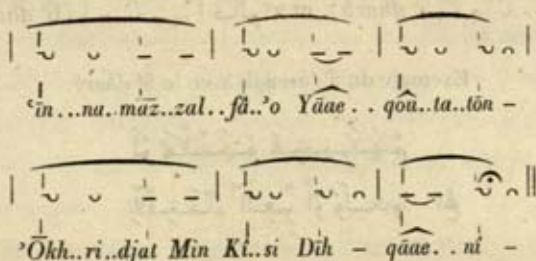 ʿīn...na..māz..zal..fâ..ʾo Yāae . . qoû..ta..tōn –
ʾŌkh..ri..djat Min Kî..si Dīh – qāae . . nî –